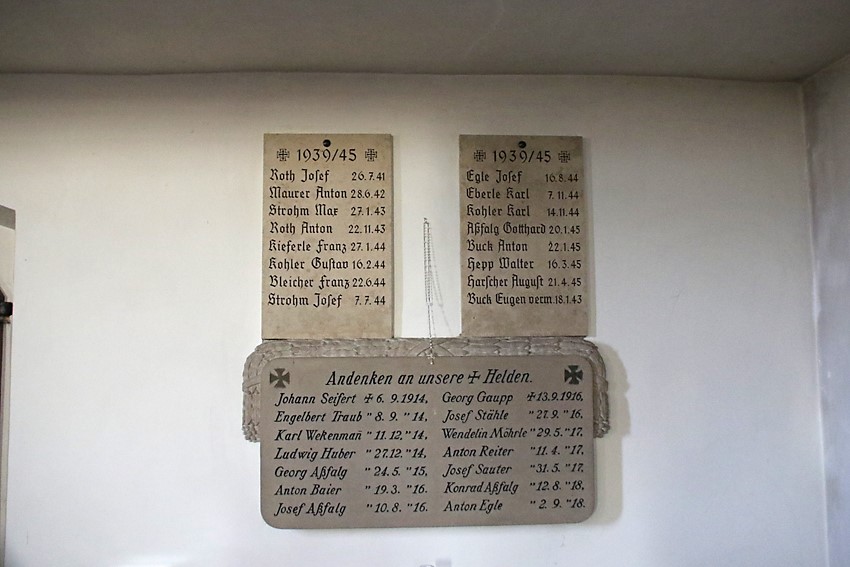 1939/45
Roth Josef 26.7.41
Maurer Anton 28.6.42
Strohm Max 27.1.43
Roth Anton 22.11.43
Kieferle Franz 27.1.44
Kohler Gustav 16.2.44
Bleicher Franz 22.6.44
Strohm Josef 7.7.44
1939/45
Egle Josef 16.8.44
Eberle Karl 7.11.44
Kohler Karl 14.11.44
Aßfalg Gotthard 20.1.45
Buck Anton 22.1.45
Hepp Walter 16.3.45
Harscher August 21.4.45
Buck Eugen verm.18.1.43
Andenken an unsere ✠ Helden.
Johann Seifert ✠ 6. 9. 1914,
Engelbert Traub " 8. 9. " 14,
Karl Wekenmañ " 11. 12. " 14,
Ludwig Huber " 27. 12. " 14,
Georg Aßfalg " 24. 5. " 15,
Anton Baier " 19. 3. " 16.
Josef Aßfalg " 10. 8. " 16.
Georg Gaupp ✠ 13. 9. 1916,
Josef Stähle " 27. 9. " 16.
Wendelin Möhrle " 29. 5. " 17,
Anton Reiter " 11. 4. " 17,
Josef Sauter " 31. 5. " 17,
Konrad Aßfalg " 12. 8. " 18,
Anton Egle " 2. 9. " 18.